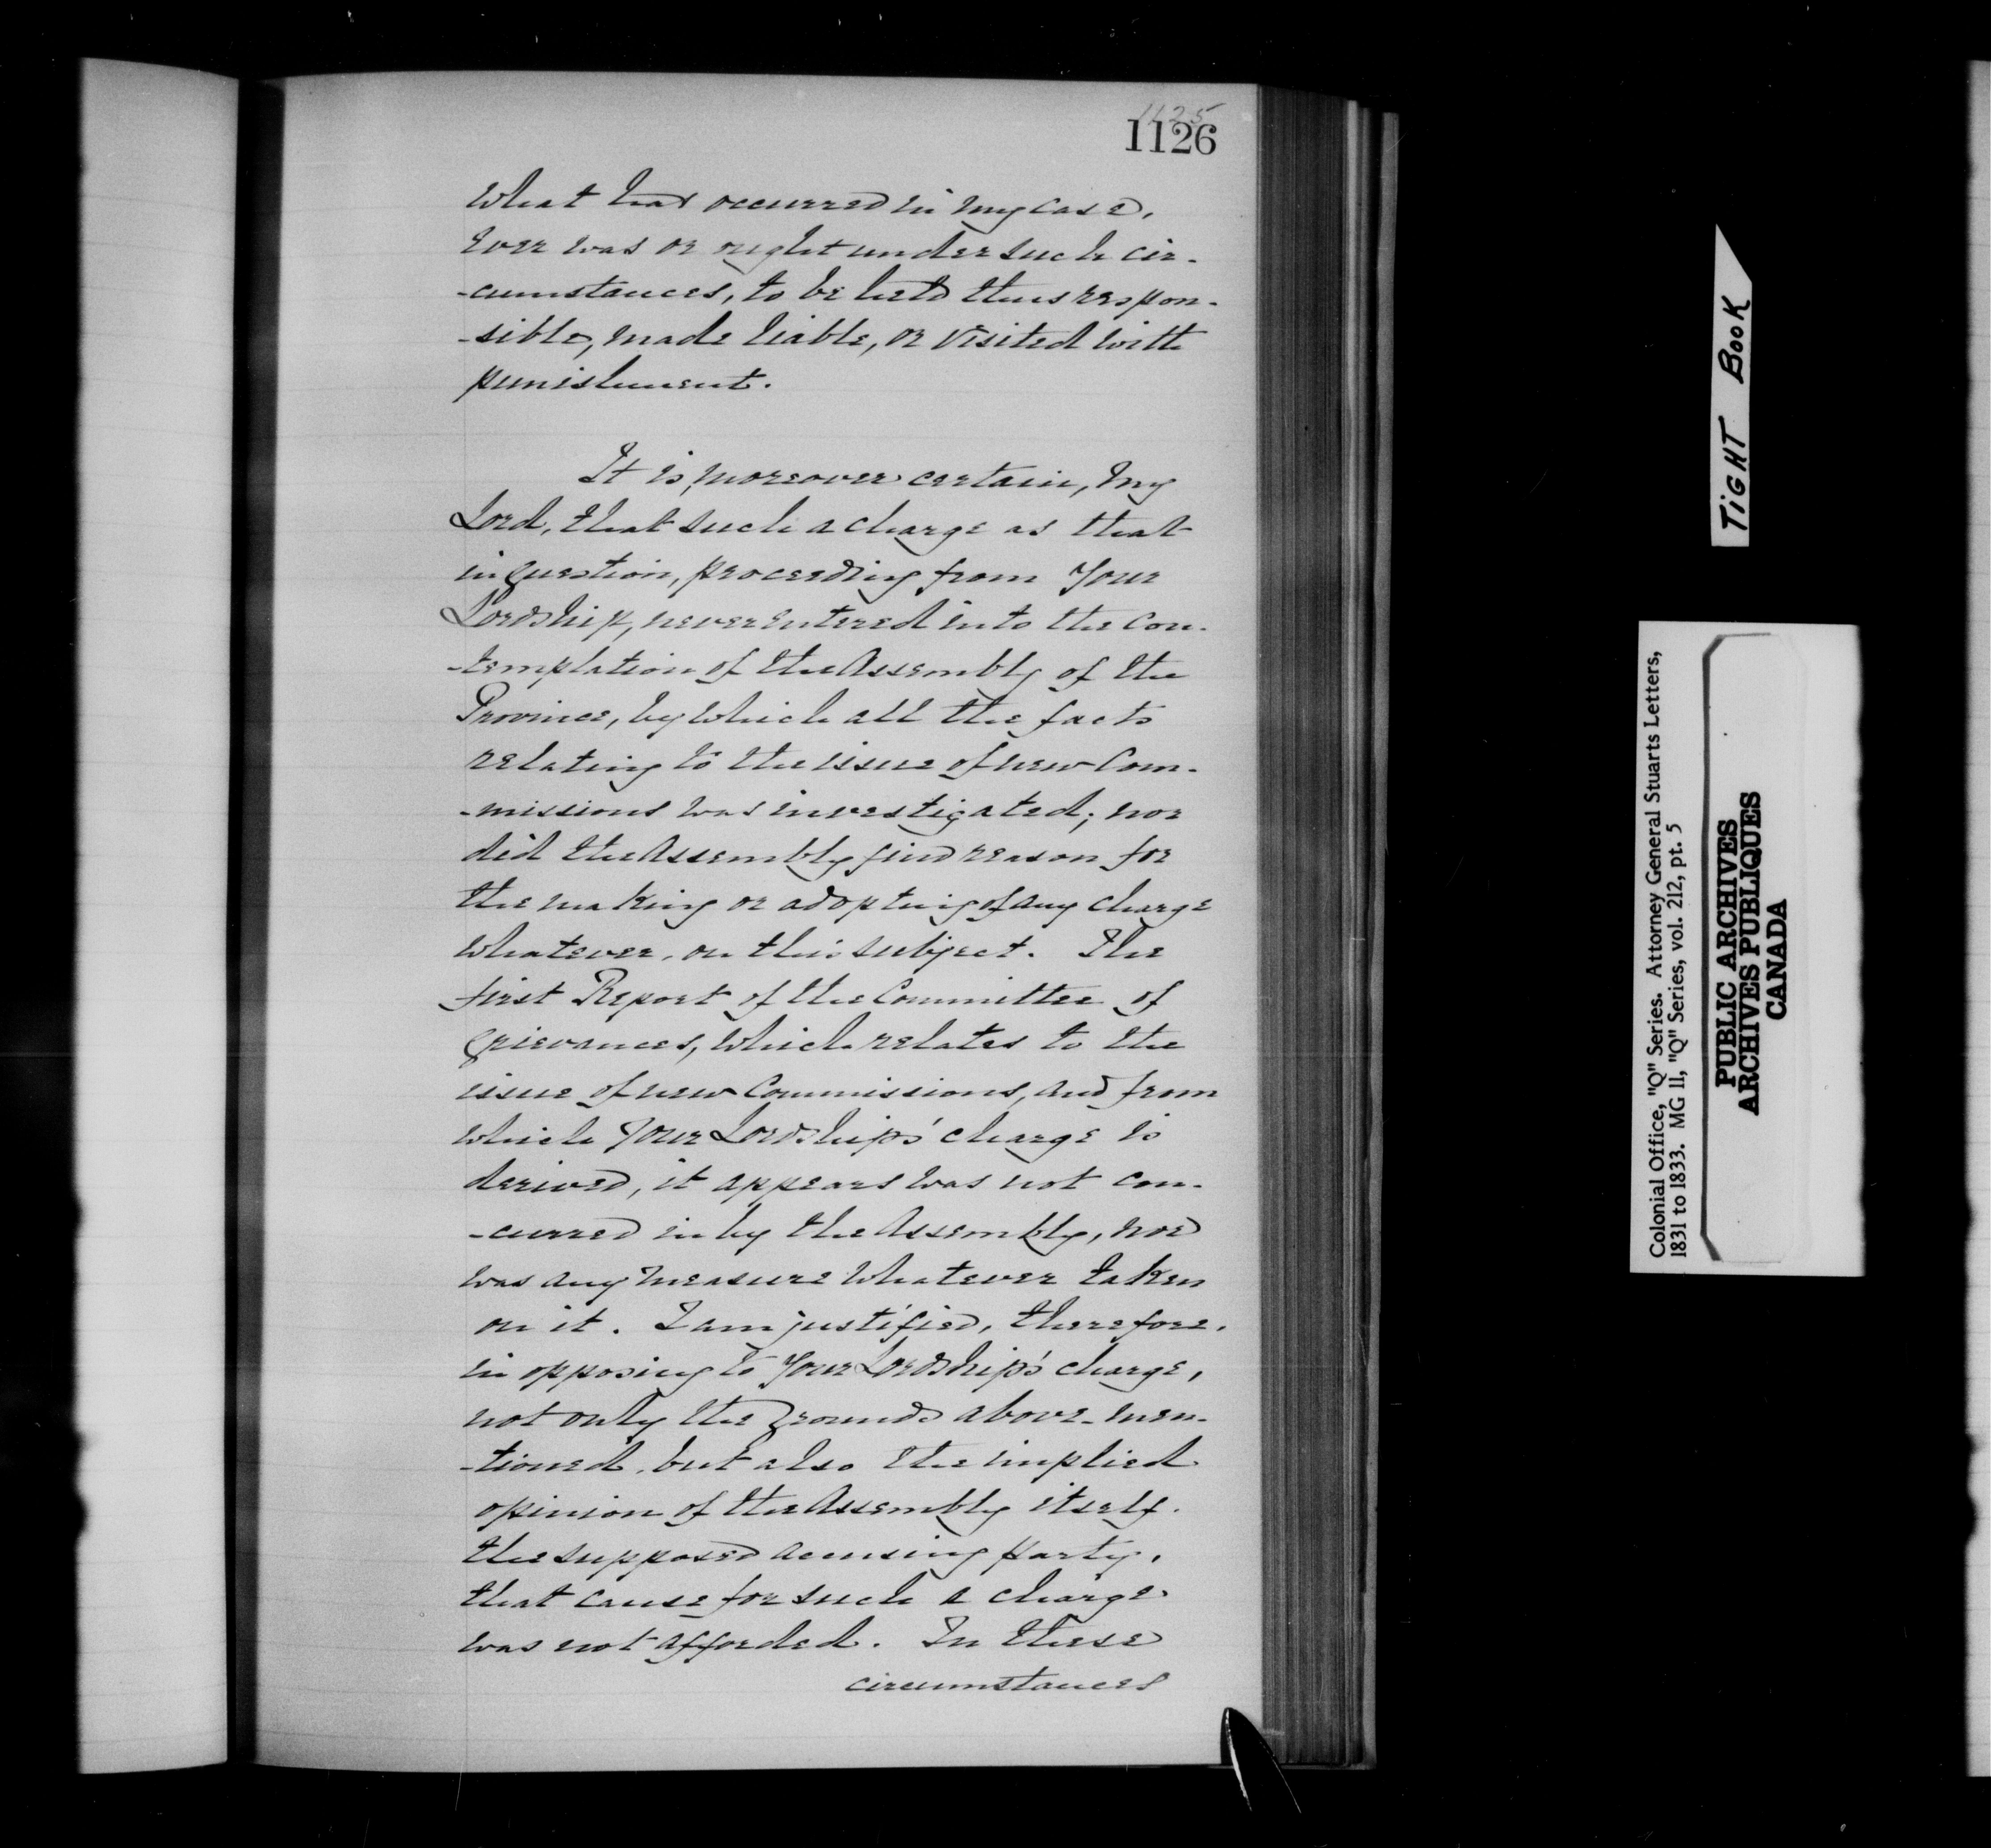 1125
1126
what has occurred in my case,
ever was or ought under such cir-
-cumstances, to be held thus respon-
-sible, made liable, or visited with
punishment.
It is, moreover certain, my
Lord, that such a charge as that
in question, proceeding from Your
Lordship, never entered into the con-
-templation of the Assembly of the
Province, by which all the facts
relating to the issue of new Com-
-missions was investigated; nor
did the Assembly find reason for
the making or adopting of any charge
whatever, on this subject. The
first Report of the Committee of
Grievances, which relates to the
issue of new Commissions, and from
which Your Lordship's charge is
derived, it appears was not con-
-curred in by the Assembly, nor
was any measure whatever taken
on it. I am justified, therefore,
in opposing to Your Lordship's charge,
not only the grounds above-men-
-tioned, but also the implied
opinion of the Assembly itself.
the supposed accusing party,
that cause for such a charge
was not afforded. In these
circumstances
TIGHT BOOK
Colonial Office, "Q" Series. Attorney General Stuarts Letters,
1831 to 1833. MG 11, "Q" Series, vol. 212, pt. 5
PUBLIC ARCHIVES
ARCHIVES PUBLIQUES
CANADA